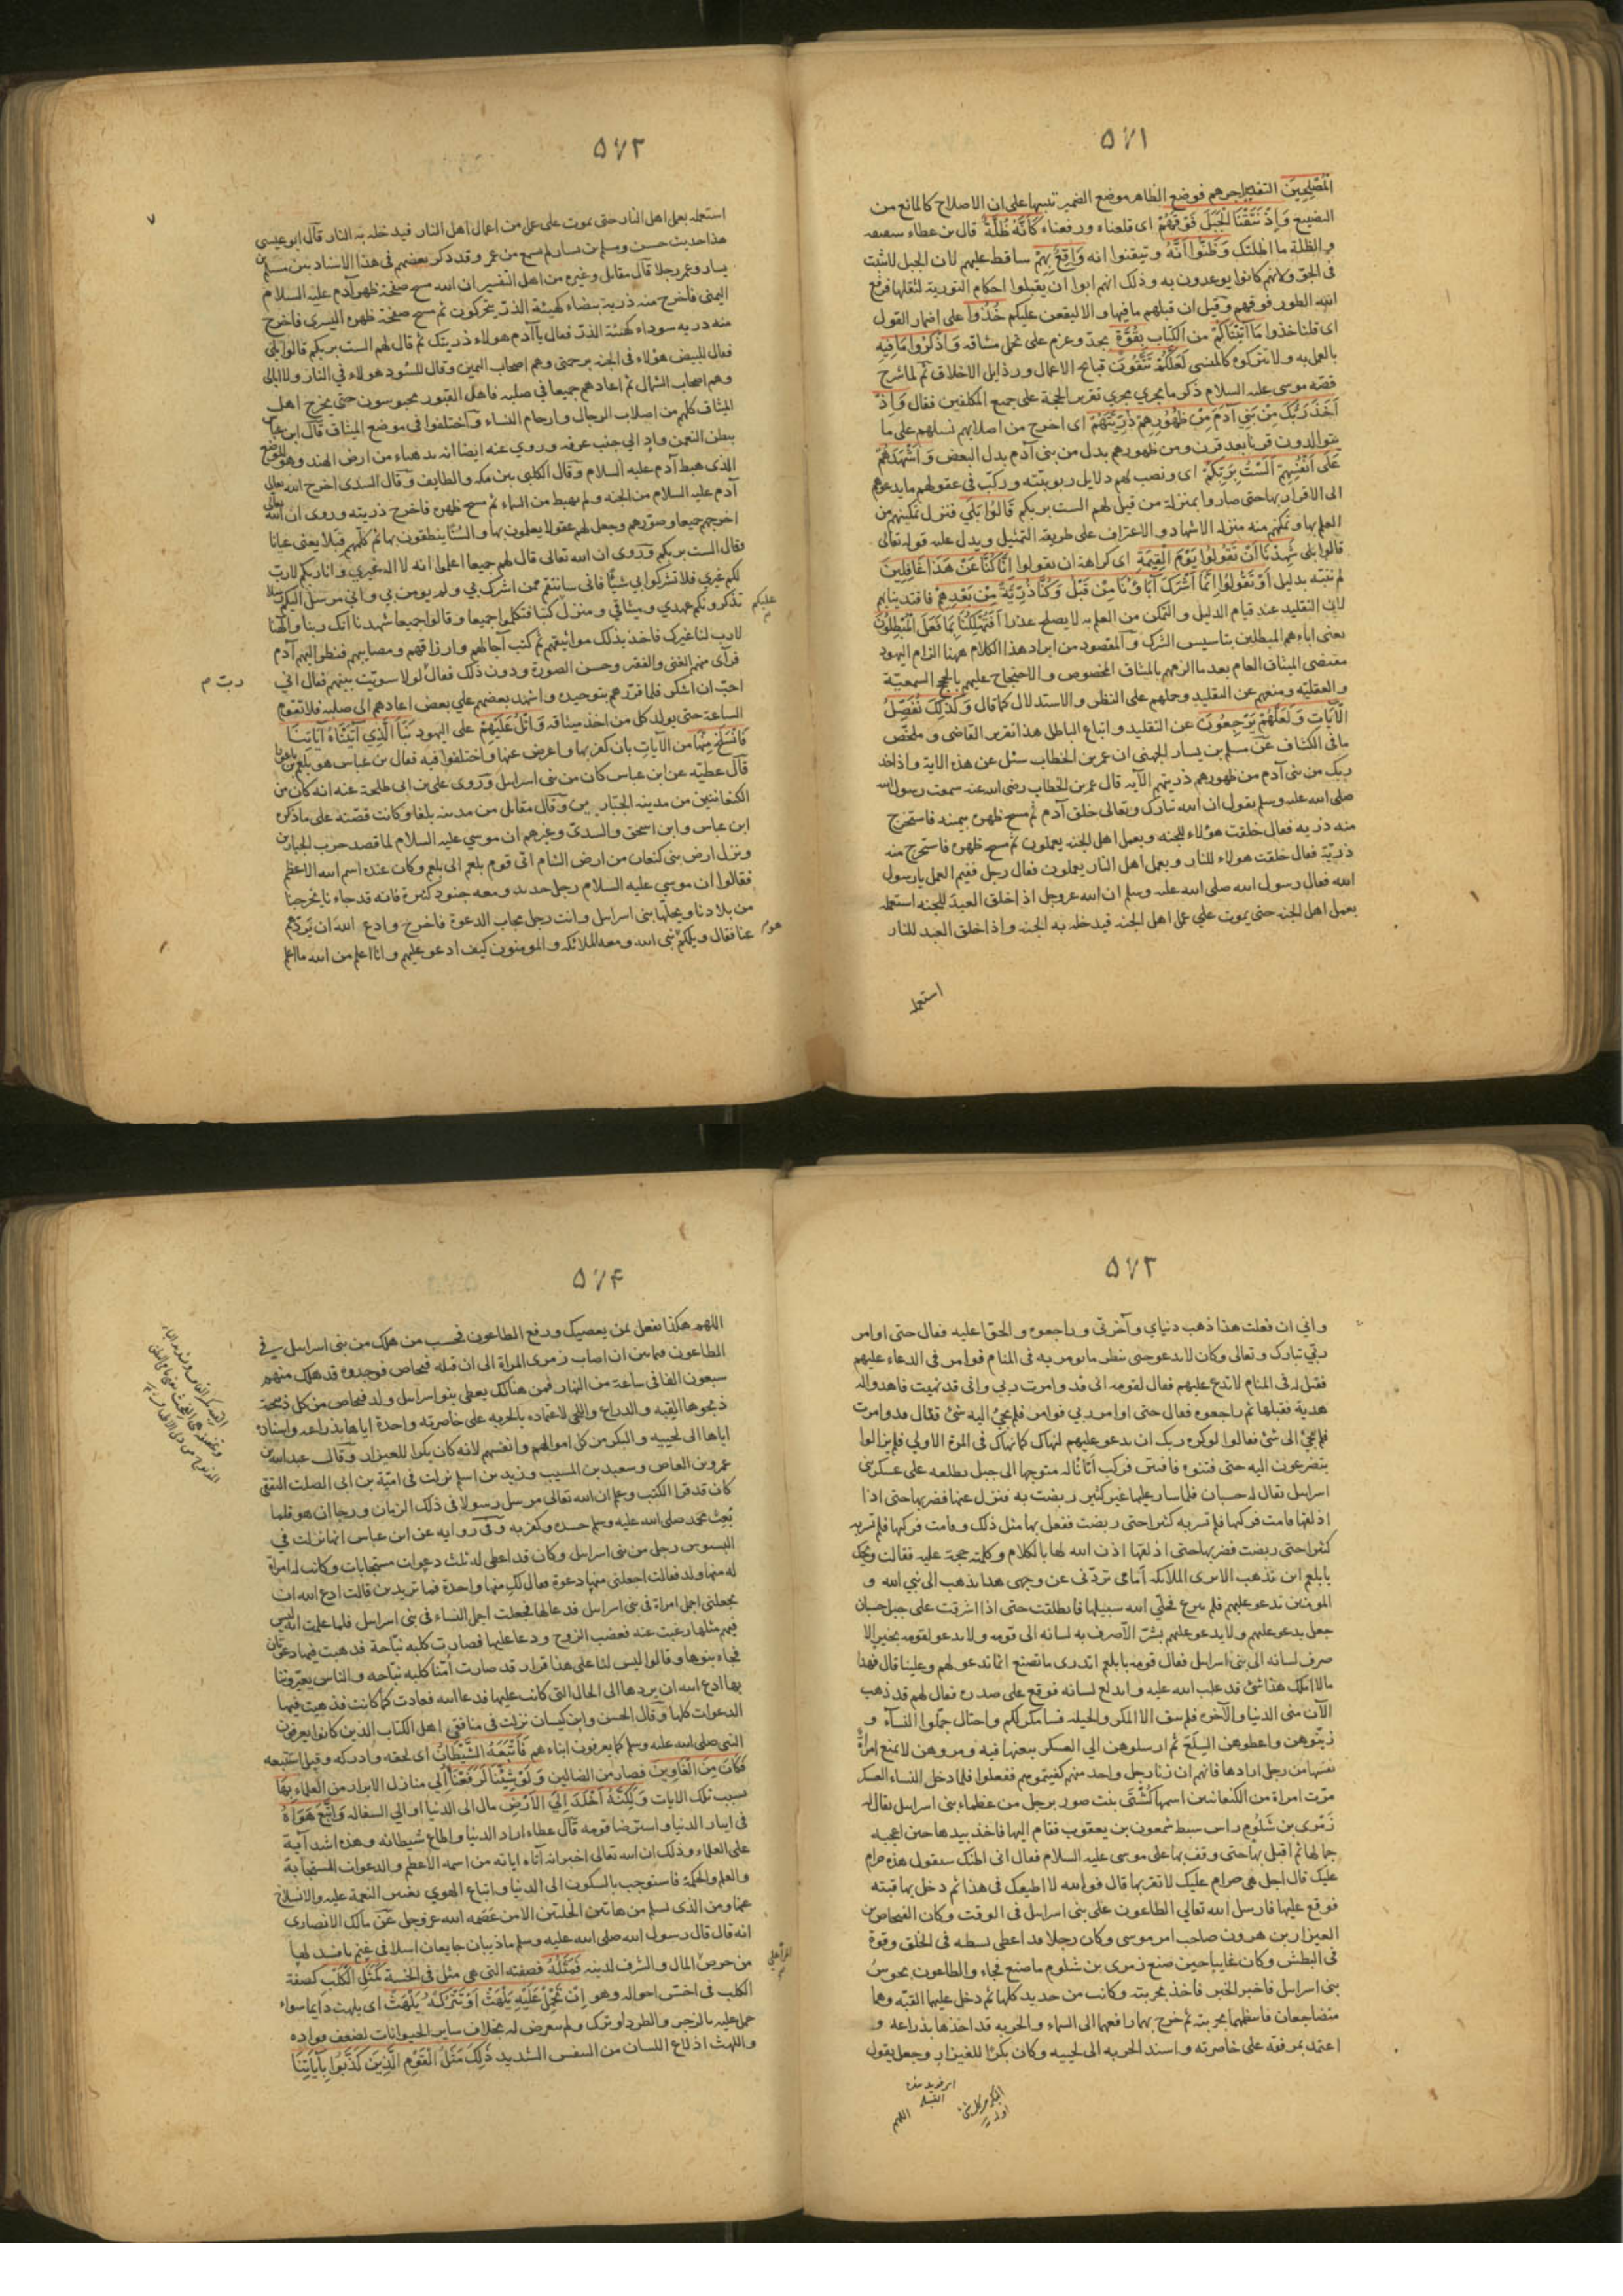 ٥٧١
الْمُصْلِحِينَ التقدير اجرهم فوضع الظاهر موضع الضمير تنبيها على ان الاصلاح كالمانع من
التضييع وَإِذْ نَتَقْنَا الْجَبَلَ فَوْقَهُمْ اى قلعناه ورفعناه كَأَنَّهُ ظُلَّةٌ قال بن عطاء سقيفه
والظلة ما اظلتك وَظَنُّوا أَنَّهُ وتيقنوا انه وَاقِعٌ بِهِمْ ساقط عليهم لان الجبل لا يثبت
فى الجو ولانهم كانوا يوعدون به وذلك انهم ابوا ان يقبلوا احكام التورية لثقلها فرفع
الله الطور فوقهم وقيل ان قبلهم ما فيها والا ليقعن عليكم خُذُوا على اضمار القول
اى قلنا خذوا مَا آتَيْنَاكُمْ من الكتاب بِقُوَّةٍ بجد وعزم على تحمل مشاقه وَاذْكُرُوا مَا فِيهِ
بالعمل به ولا تتركوه كالمنسى لَعَلَّكُمْ تَتَّقُونَ قبائح الاعمال ورذايل الاخلاق ثم لما شرح
قصة موسى عليه السلام ذكر ما يجري مجري تقرير الحجة على جميع المكلفين فقال وَإِذْ
أَخَذَ رَبُّكَ مِنْ بَنِي آدَمَ مِنْ ظُهُورِهِمْ ذُرِّيَّتَهُمْ اى اخرج من اصلابهم نسلهم على ما
يتوالدون قرنا بعد قرن ومن ظهورهم بدل من بنى آدم بدل البعض وَأَشْهَدَهُمْ
عَلَى أَنْفُسِهِمْ أَلَسْتُ بِرَبِّكُمْ اى ونصب لهم دلايل ربوبيته وركّب فى عقولهم ما يدعوهم
الى الاقرار بها حتى صاروا بمنزلة من قيل لهم الست بربكم قَالُوا بَلَى فنزل تمكينهم من
العلم بها وتمكنهم منه منزلة الاشهاد والاعتراف على طريقة التمثيل ويدل عليه قوله تعالى
قالوا بلى شَهِدْنَا أَنْ تَقُولُوا يَوْمَ الْقِيمَةِ اى كراهة ان يقولوا إِنَّا كُنَّا عَنْ هَذَا غَافِلِينَ
لم ننبه بدليل أَوْ تَقُولُوا إِنَّمَا أَشْرَكَ آبَاؤُنَا مِنْ قَبْلُ وَكُنَّا ذُرِّيَّةً مِنْ بَعْدِهِمْ فاقتدينا بهم
لان التقليد عند قيام الدليل والتمكن من العلم به لا يصلح عذرا أَفَتُهْلِكُنَا بِمَا فَعَلَ الْمُبْطِلُونَ
يعنى اباءهم المبطلين بتاسيس الشرك والمقصود من ايراد هذا الكلام ههنا الزام اليهود
مقتضى الميثاق العام بعد ما الزمهم بالميثاق المخصوص والاحتجاج عليهم بالحجج السمعية
والعقليّة ومنعهم عن التقليد وحملهم على النظر والاستدلال كما قال وَكَذَلِكَ نُفَصِّلُ
الْآيَاتِ وَلَعَلَّهُمْ يَرْجِعُونَ عن التقليد واتباع الباطل هذا تقرير القاضى وملخّص
ما فى الكشاف عن مسلم بن يسار الجهنى ان عمر بن الخطاب سئل عن هذه الاية واذ اخذ
ربك من بنى آدم من ظهورهم ذريتهم الآية قال عمر بن الخطاب رضى الله عنه سمعت رسول الله
صلى الله عليه وسلم يقول ان الله تبارك وتعالى خلق آدم ثم مسح ظهره بيمينه فاستخرج
منه ذريه فقال خلقت هؤلاء للجنه وبعمل اهل الجنه يعملون ثم مسح ظهره فاستخرج منه
ذريّة فقال خلقت هولاء للنار وبعمل اهل النار يعملون فقال رجل ففيم العمل يا رسول
الله فقال رسول الله صلى الله عليه وسلم ان الله عزوجل اذا خلق العبد للجنه استعمله
بعمل اهل الجنه حتى يموت على عمل اهل الجنه فيدخله به الجنه واذا خلق العبد للنار
استعمله
٥٧٢
استعمله بعمل اهل النار حتى يموت على عمل من اعمال اهل النار فيدخله به النار قال ابو عيسى
هذا حديث حسن ومسلم بن يسار لم يسمع من عمر وقد ذكر بعضهم فى هذا الاسناد بين مسلم بن
يسار وعمر رجلا قال مقاتل وغيره من اهل التفسير ان الله مسح صفحة ظهر آدم عليه السلام
اليمنى فاخرج منه ذرية بيضاء كهيئة الذر يتحركون ثم مسح صفحة ظهره اليسرى فاخرج
منه ذريه سوداء كهيئة الذر فقال يا آدم هولاء ذريتك ثم قال لهم الست بربكم قالوا بلى
فقال للبيض هؤلاء فى الجنه برحمتى وهم اصحاب اليمين وقال للسود هولاء في النار ولا ابالى
وهم اصحاب الشمال ثم اعادهم جميعا في صلبه فاهل القبور محبوسون حتى يخرج اهل
الميثاق كلهم من اصلاب الرجال وارحام النساء واختلفوا فى موضع الميثاق قال ابن عباس
ببطن النعمن واد الى جنب عرفه وروي عنه ايضا انه بدهناء من ارض الهند وهو الموضع
الذى هبط آدم عليه السلام وقال الكلبى بين مكه والطايف وقال السدى اخرج الله تعالى
آدم عليه السلام من الجنه ولم يهبط من السماء ثم مسح ظهره فاخرج ذريته وروى ان الله تعالى
اخرجهم جميعا وصوّرهم وجعل لهم عقولا يعلمون بها والسنا ينطقون بها ثم كلّمهم قبلا يعنى عيانا
وقال الست بربكم وروى ان الله تعالى قال لهم جميعا اعلموا انه لا اله غيري وانا ربكم لا رب
لكم غيري فلا تشركوا بي شيئا فانى سانتقم ممن اشرك بي ولم يومن بي وانى مرسل اليكم رسلا
يذكرونكم عهدي وميثاقي ومنزل كتبا فتكلموا جميعا وقالوا جميعا شهدنا انك ربنا والهنا
عليكم
لا رب لنا غيرك فاخذ بذلك مواثيقهم ثم كتب آجالهم وارزاقهم ومصايبهم فنظر اليهم آدم
فرآى منهم الغنى والفقير وحسن الصورة ودون ذلك فقال لولا سويت بينهم فقال اني
احبّ ان اشكر فلما قررهم بتوحيده واشهد بعضهم علي بعض اعادهم الى صلبه فلا تقوم
الساعة حتى يولد كل من اخذ ميثاقه وَاتْلُ عَلَيْهِمْ على اليهود نَبَأَ الَّذِي آتَيْنَاهُ آيَاتِنَا
فَانْسَلَخَ مِنْهَا من الآيات بان كفر بها واعرض عنها واختلفوا فيه فقال بن عباس هو بلعم بن باعورا
قال عطيّه عن ابن عباس كان من بنى اسراسل وروى على بن ابى طلحة عنه انه كان من
الكنعانيين من مدينه الجبارين وقال مقاتل من مدينه بلقا وكانت قصته على ما ذكره
ابن عباس وابن اسحق والسدى وغيرهم ان موسي عليه السلام لما قصد حرب الجبارين
ونزل ارض بنى كنعان من ارض الشام اتى قوم بلعم الى بلعم وكان عنده اسم الله الاعظم
فقالوا ان موسي عليه السلام رجل حديد ومعه جنود كثيرة فانه قد جاءنا يخرجنا
من بلادنا ويحلّها بنى اسراسل وانت رجل مجاب الدعوة فاخرج وادع الله ان يردهم
عنا فقال ويلكم نبى الله ومعه الملائكه والمومنون كيف ادعو عليهم وانا اعلم من الله ما اعلم
٥٧٣
واني ان فعلت هذا ذهب دنياي وآخرتى وراجعوه والحوا عليه فقال حتى اوامر
ربي تبارك وتعالى وكان لا يدعو حتى ينظر ما يومر به فى المنام فوامر فى الدعاء عليهم
فقيل له فى المنام لا تدع عليهم فقال لقومه انى قد وامرت ربي وانى قد نهيت فاهدوا له
هدية فقبلها ثم راجعوه فقال حتى اوامر ربي فوامر فلم يجئ اليه شئ فقال قد وامرت
فلم يجئ الى شئ فقالوا لو كره ربك ان يدعو عليهم لنهاك كما نهاك فى المرة الاولى فلم يزالوا
يتضرعون اليه حتى فتنوه فافتتن فركب اتانا له متوجها الى جبل يطلعه على عسكر بنى
اسراسل يقال له حسبان فلما سار عليها غير كثير ربضت به فنزل عنها فضربها حتى اذا
اذلقها قامت فركبها فلم تسر به كثيرا حتى ربضت ففعل بها مثل ذلك وقامت فركبها فلم تسر به
كثيرا حتى ربضت فضربها حتى اذلقها اذن الله لها بالكلام وكلمته حجة عليه فقالت ويحك
يا بلعم اين تذهب الا ترى الملائكه امامى تردنى عن وجهى هذا يذهب الى نبي الله و
المومنين تدعو عليهم فلم ينزع فخلّى الله سبيلها فانطلقت حتى اذا اشرقت على جبل حسبان
جعل يدعو عليهم ولا يدعو عليهم بشر الا صرف به لسانه الى قومه ولا يدعو لقومه بخير الا
صرف لسانه الى بنى اسراسل فقال قومه يا بلعم اتدرى ما تصنع انما تدعو لهم وعلينا قال فهذا
ما لا املك هذا شئ قد غلب الله عليه واندلع لسانه فوقع على صدره فقال لهم قد ذهب
الآن منى الدنيا والآخره فلم يبق الا المكر والحيله فسامكر لكم واحتال جمّلوا النسآء و
زينوهن واعطوهن السلع ثم ارسلوهن الي العسكر يبعنها فيه ومروهن لا تمنع امراة
نفسها من رجل ارادها فانهم ان زنا رجل واحد منهم كفيتموهم ففعلوا فلما دخل النساء العسكر
مرّت امراة من الكنعانيين اسمها كُشْتَى بنت صور برجل من عظماء بنى اسراسل يقال له
زمرى بن شَلُوم راس سبط شمعون بن يعقوب فقام اليها فاخذ بيدها حين اعجبه
جمالها ثم اقبل بها حتى وقف بها على موسى عليه السلام فقال انى اظنك ستقول هذه حرام
عليك قال اجل هى حرام عليك لا تقربها قال فوالله لا اطيعك فى هذا ثم دخل بها قبته
فوقع عليها فارسل الله تعالي الطاعون على بنى اسراسل فى الوقت وكان الفنحاص بن
العيزار بن هرون صاحب امر موسى وكان رجلا قد اعطى بسطه فى الخلق وقوة
فى البطش وكان غايبا حين صنع زمرى بن شلوم ما صنع فجاء والطاعون يحوس
بنى اسراسل فاخبر الخبر فاخذ بحربته وكانت من حديد كلها ثم دخل عليهما القبّه وهما
متضاجعان فانتظمهما بحربته ثم خرج بهما رافعهما الى السماء والحربه قد اخذها بذراعه و
اعتمد بمرفقه على خاصرته واسند الحربه الى لحييه وكان بكرا للعيزار وجعل يقول
اللهم
٥٧٤
اللهم هكذا نفعل بمن يعصيك ورفع الطاعون فحسب من هلك من بنى اسراسل فى
الطاعون فيما بين ان اصاب زمرى المراة الى ان قتله فنحاص فوجدوه قد هلك منهم
سبعون الفا فى ساعة من النهار فمن هنالك يعطى بنو اسراسل ولد فنحاص من كل ذبيحة
ذبحوها القبه والذراع واللحى لاعتماده بالحربه على خاصرته واحدة اياها بذراعه واسناده
اياها الى لحييه والبكر من كل اموالهم وانفسهم لانه كان بكرا للعيزار وقال عبد الله بن
عمرو بن العاص وسعيد بن المسيب وزيد بن اسلم نزلت فى اميّة بن ابى الصلت الثقفى
كان قد قرا الكتب وعلم ان الله تعالى مرسل رسولا فى ذلك الزمان ورجا ان هو فلما
بُعث محمد صلى الله عليه وسلم حسده وكفر به وفى روايه عن ابن عباس انها نزلت فى
البسوس رجل من بنى اسراسل وكان قد اعطى له ثلث دعوات مستجابات وكانت له امراة
له منها ولد فقالت اجعلنى منها دعوة فقال لك منها واحدة فما تريدين قالت ادع الله ان
يجعلنى اجمل امراة فى بنى اسراسل فدعا لها فجعلت اجمل النساء فى بنى اسراسل فلما علمت انه ليس
فيهم مثلها رغبت عنه فغضب الزوج ودعا عليها فصارت كلبه نبّاحة فذهبت فيها دعوتان
فجاء بنوها وقالوا ليس لنا على هذا قرار قد صارت امّنا كلبه نباحه والناس يعيّروننا
بها ادع الله ان يردها الى الحال التى كانت عليها فدعا الله فعادت كما كانت فذهبت فيها
الدعوات كلها وقال الحسن وابن كيسان نزلت فى منافقى اهل الكتاب الذين كانوا يعرفون
النبى صلى الله عليه وسلم كما يعرفون ابناءهم فَأَتْبَعَهُ الشَّيْطَانُ اى لحقه وادركه وقيل استتبعه
فَكَانَ مِنَ الْغَاوِينَ فصار من الضالين وَلَوْ شِئْنَا لَرَفَعْنَاهُ الى منازل الابرار من العلماء بِهَا
بسبب تلك الايات وَلَكِنَّهُ أَخْلَدَ إِلَى الْأَرْضِ مال الى الدنيا او الي السفاله وَاتَّبَعَ هَوَاهُ
فى ايثار الدنيا واسترضا قومه قال عطاء اراد الدنيا واطاع شيطانه وهذه اشد آية
على العلماء وذلك ان الله تعالى اخبر انه آتاه اياته من اسمه الاعظم والدعوات المستجابة
والعلم والحكمة فاستوجب بالسكون الى الدنيا واتباع الهوي تغيير النعمة عليه والانسلاخ
عنها ومن الذى يسلم من هاتين الخلتين الا من عصمه الله عزوجل عن مالك الانصارى
انه قال قال رسول الله صلى الله عليه وسلم ما ذيبان جايعان ارسلا فى غنم بافسد لها
من حرص المال والشرف لدينه فَمَثَلُهُ فصفته التى هى مثل فى الخسة كَمَثَلِ الْكَلْبِ كصفة
الكلب فى اخسّ احواله وهو إِنْ تَحْمِلْ عَلَيْهِ يَلْهَثْ أَوْ تَتْرُكْهُ يَلْهَثْ اى يلهث دايما سواء
حمل عليه بالزجر والطرد او ترك ولم يتعرض له بخلاف ساير الحيوانات لضعف فواده
واللهث اذلاع اللسان من التنفس الشديد ذَلِكَ مَثَلُ الْقَوْمِ الَّذِينَ كَذَّبُوا بِآيَاتِنَا